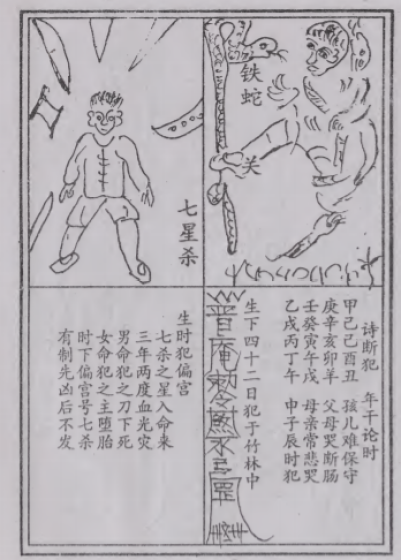 铁蛇关
七星杀
诗断犯 年干论时
甲己己酉丑 孩儿难保守
庚辛亥卯羊 父母哭断肠
壬癸寅午戌 母亲常悲哭
乙戌丙丁午 申子辰时犯
生下四十二日犯于竹林中
普庵勅令
生时犯偏宫
七杀之星入命来
三年两度血光灾
男命犯之刀下死
女命犯之主堕胎
时下偏宫号七杀
有制先凶后不发